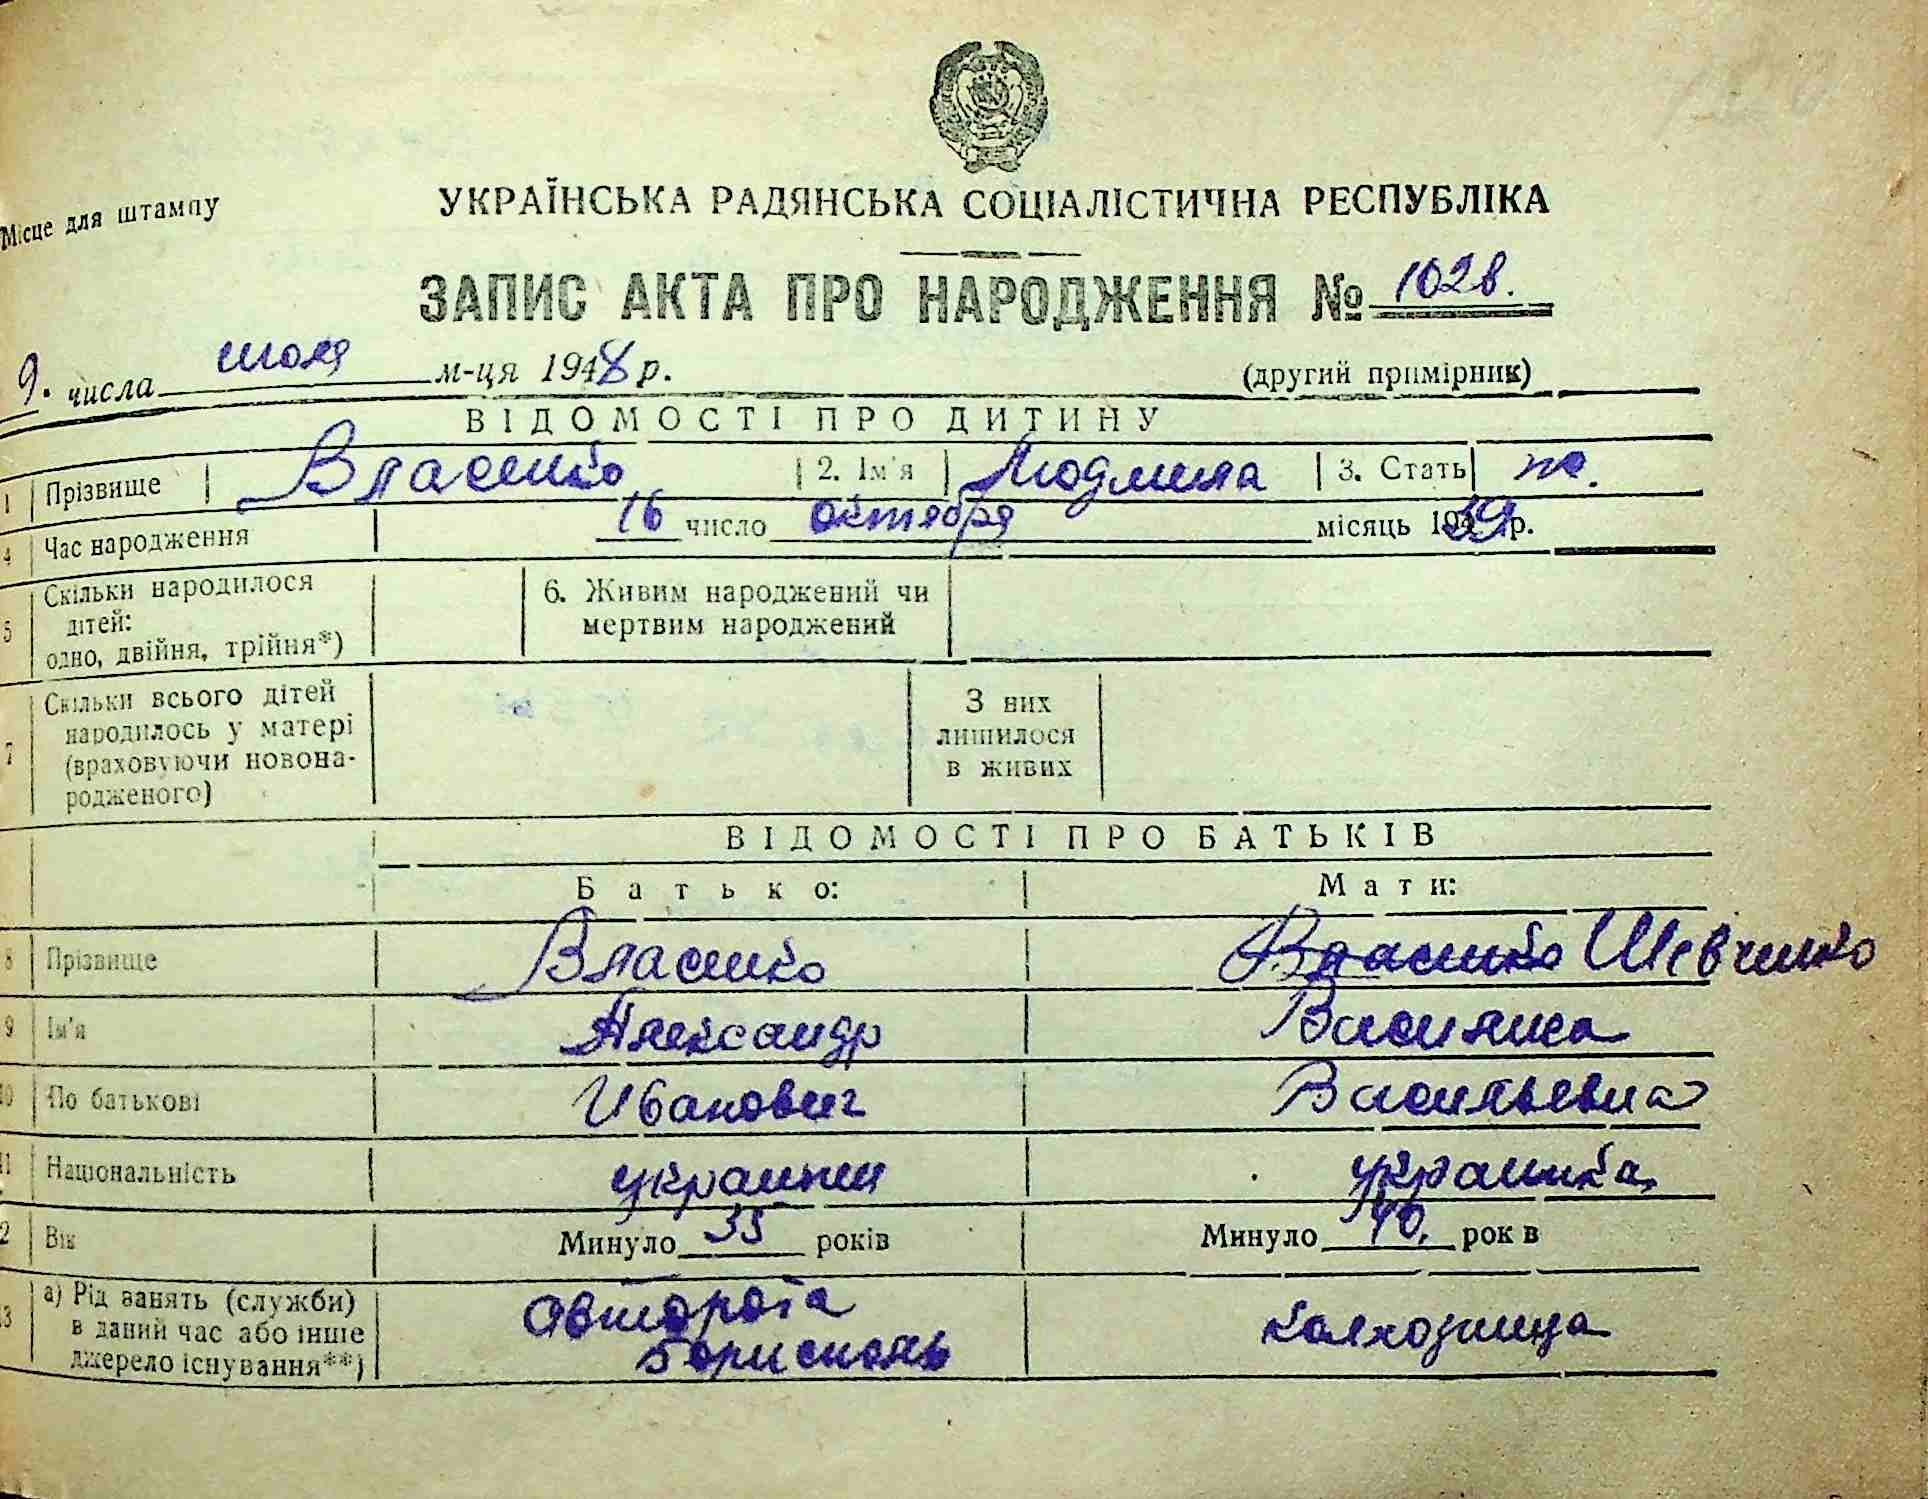 Місце для штампу
УКРАЇНСЬКА РАДЯНСЬКА СОЦІАЛІСТИЧНА РЕСПУБЛІКА
ЗАПИС АКТА ПРО НАРОДЖЕННЯ № 102в.
9. числа июля м-ця 1948 р. (другий примірник)
ВІДОМОСТІ ПРО ДИТИНУ
1 Прізвище Власенко 2. Ім'я Людмила 3. Стать ж.
4 Час народження 16 число октября місяць 1939 р.
5 Скільки народилося дітей: одно, двійня, трійня*) 6. Живим народжений чи мертвим народжений
7 Скільки всього дітей народилось у матері (враховуючи новонародженого) З них лишилося в живих
ВІДОМОСТІ ПРО БАТЬКІВ
Батько: Мати:
8 Прізвище Власенко Власенко Шевченко
9 Ім'я Александр Василиса
10 По батькові Иванович Васильевна
11 Національність украинец украинка
12 Вік Минуло 35 років Минуло 40. рок в
13 а) Рід занять (служби) в даний час або інше джерело існування**) Авторота Борисполь колхозница